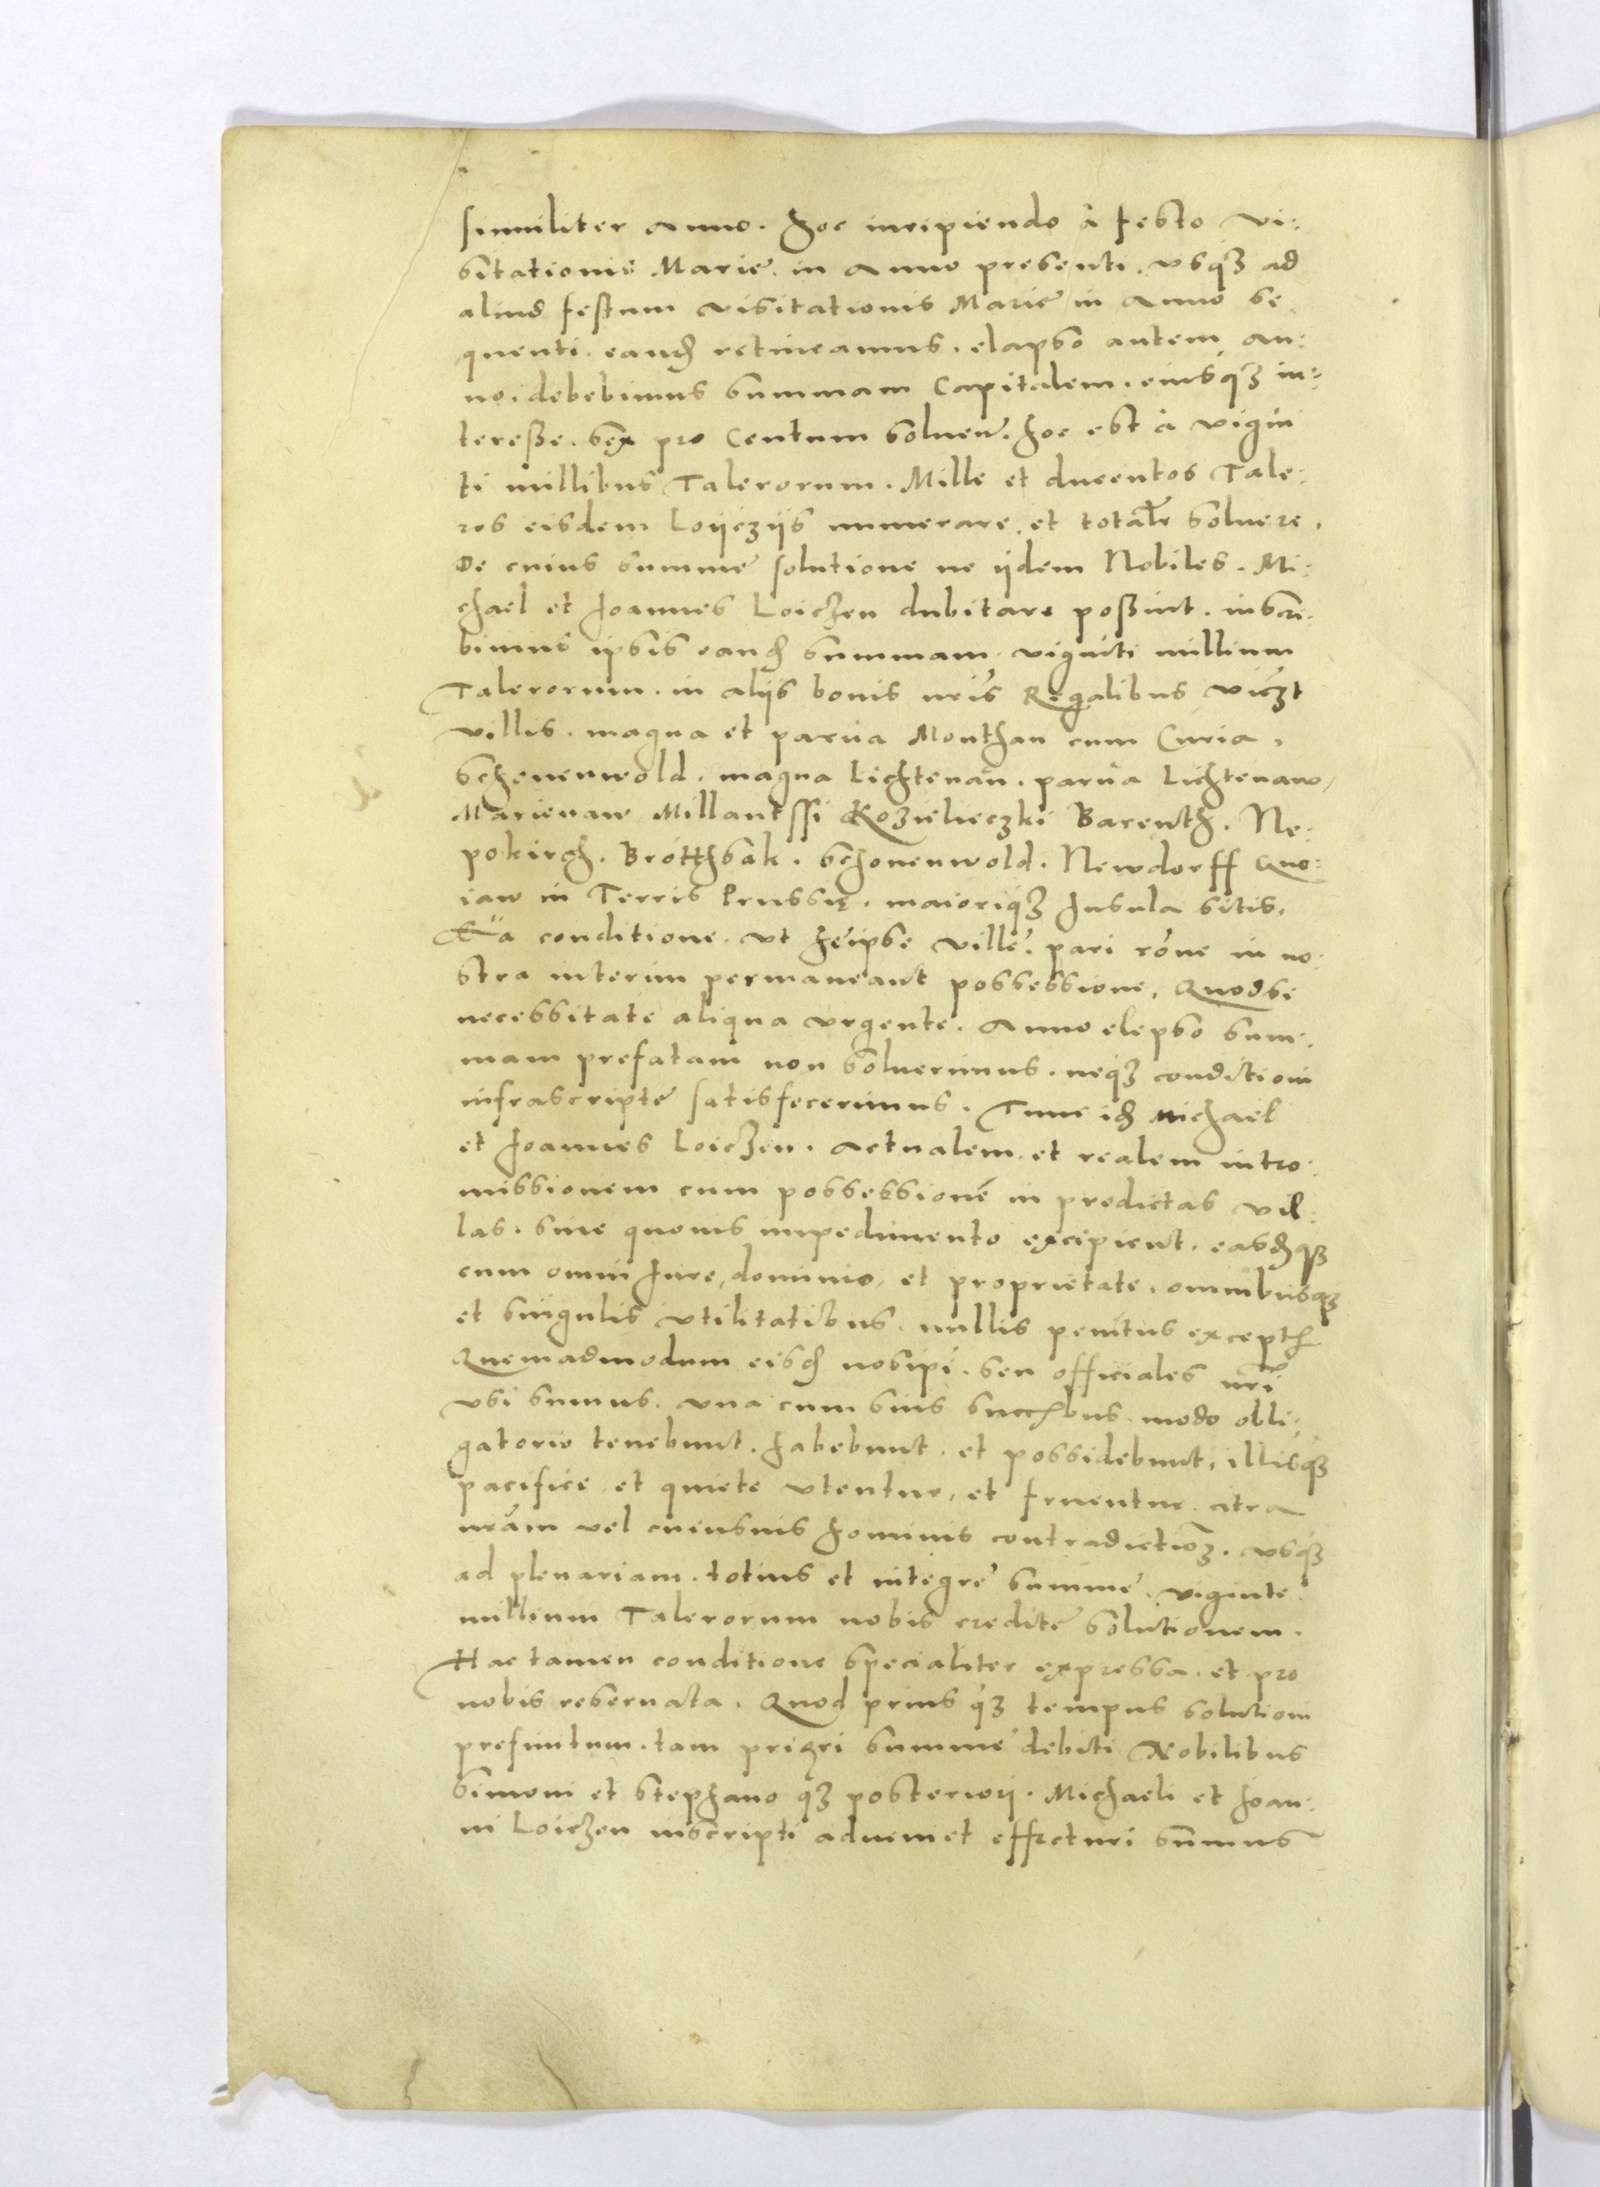 similiter Anno. Hoc incipiendo à festo Vi:
sitationis Marie. in Anno presenti. vsq3 ad
aliud festum visitationis Marie in Anno se
quenti. eand retineamus. elapso autem an:
no. debebimus summam Capitalem. eiusq3 in:
teresse. sex pro Centum soluere. hoc est à vigin
ti millibus Talerorum. Mille et ducentos Tale:
ros eisdem Loijczijs numerare. et totalr soluere.
De cuius summe solutione ne ijdem Nobiles. Mi:
chael et Joannes Loiczen dubitare possint. inscri:
bimus ipsis eand summam viginti millium
Talerorum. in alijs bonis nris Regalibus viczt
villis. magna et parua Monthau cum Curia.
Schenenwold. magna Lichtenau. parua Lichtenaw.
Marienaw Millantssi Kozielieczki Barenth. Ne:
pokirch. Brotthsak. Schonenwold. Newdorff Cuo:
iaw in Terris Prussie. maioriq3 Insula sitis.
Ea conditione. vt heipse ville. pari rone in no:
stra interim permaneant possessione. Quodsi
necessitate aliqua vrgente. Anno elepso sum:
mam prefatam non soluerimus. neq3 conditioni
infrascripte satisfecerimus. Tunc id Michael
et Joannes Loiczen. Actualem. et realem intro:
missionem cum possessione in predictas vil:
las. sine quouis impedimento excipient. easdq3
cum omni Jure, dominio, et proprietate. omnibusq3
et singulis vtilitatibus. nullis penitus except
Quemadmodum eisd nosipi. seu officiales nri
vsi sumus. vna cum suis succbus. modo obli:
gatorio tenebunt. habebunt. et possidebunt. illisq3
pacifice. et quiete vtentur, et fruentur. citra
nram vel cuiusuis hominis contradictio3. vsq3
ad plenariam. totius et integre summe. viginte
millium Talerorum nobis credite solutionem.
Hac tamen conditione specialiter expressa. et pro
nobis reseruata. Quod prius q3 tempus solutioni
prefinitum. tam priori summe debiti Nobilibus
Simoni et Stephano q3 posteriori. Michaeli et Joan:
ni Loiczen inscripti adueniet effecturi sumus